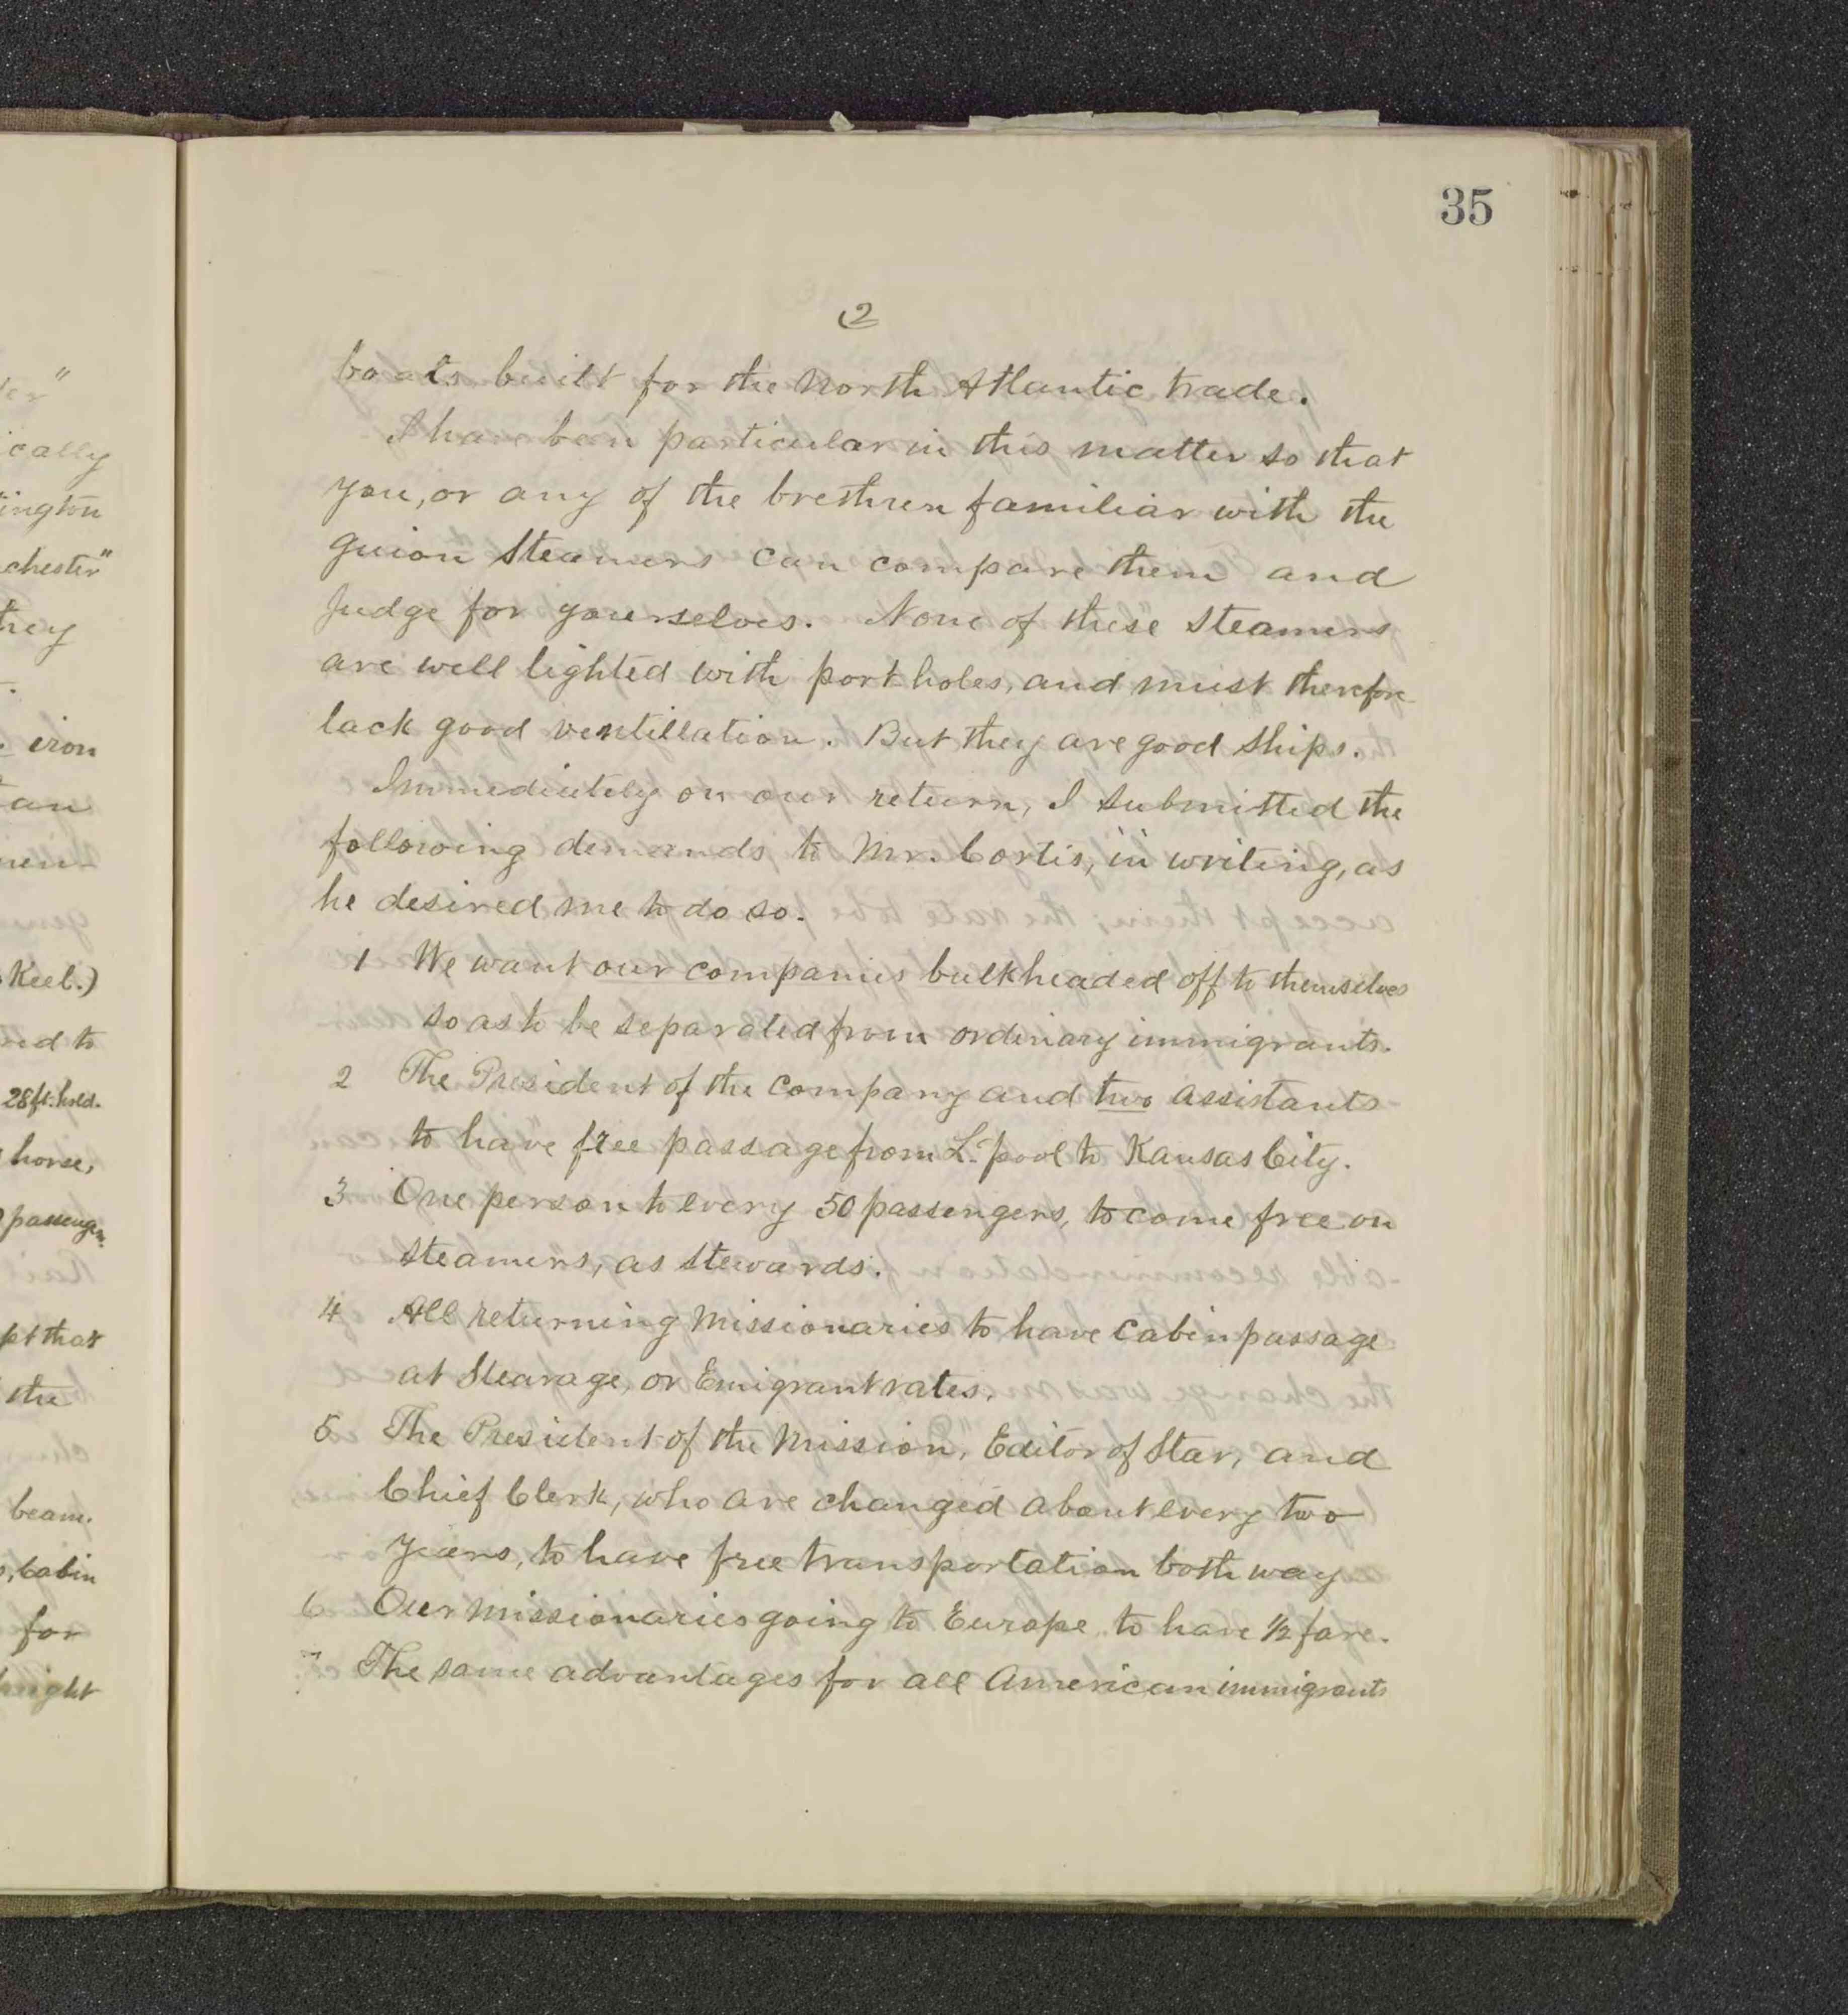 er"
ically
ington
chester"
they
iron
an
men-
Keel.)
ed to
28 ft. hold.
horse,
passengers.
pt that
the
beam.
s, Cabin
for
height
35
2
boats built for the North Atlantic trade.
I have been particular in this matter so that
you, or any of the brethren familiar with the
Guion Steamers can compare them and
Judge for yourselves. None of these Steamers
are well lighted with port holes, and must therefore
lack good ventillation. But they are good Ships.
Immediately on our return, I submitted the
following demands to Mr. Cortis, in writing, as
he desired me to do so.
1 We want our companies bulkheaded off to themselves
so as to be separated from ordinary immigrants.
2 The President of the Company and two assistants
to have free passage from L.pool to Kansas City.
3 One person to every 50 passengers, to come free on
Steamers, as Stewards.
4 All returning Missionaries to have Cabin passage
at Stearage, or Emigrant rates.
5 The President of the Mission, Editor of Star, and
Chief Clerk, who are changed about every two
Years, to have free transportation both way
6 Our missionaries going to Europe to have 1/2 fare.
7 The same advantages for all American immigrants